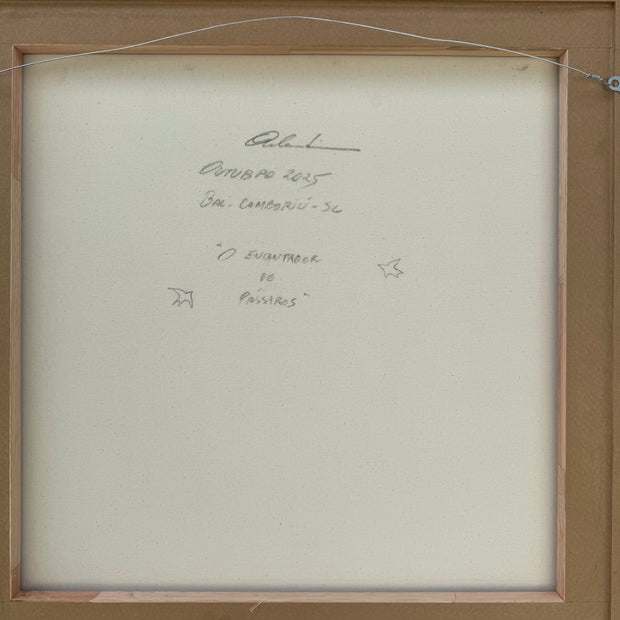 OUTUBRO 2025
BAL. CAMBORIÚ - SC
"O ENCANTADOR
DE
PÁSSAROS"